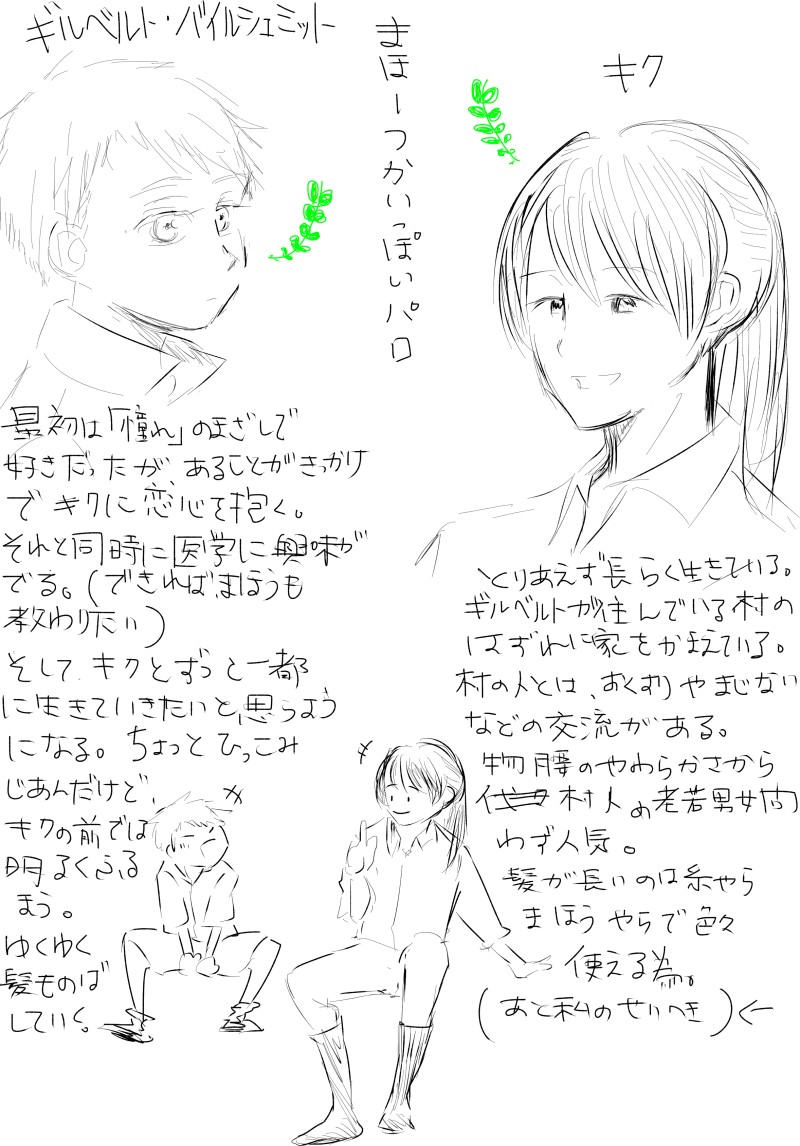 ギルベルト・バイルシュミット
まほーつかいっぽいパロ
キク
最初は「憧れ」のまざしで
好きだったが、あることがきっかけ
でキクに恋心を抱く。
それと同時に医学に興味が
でる。(できればまほうも
教わりたい)
そして、キクとずっと一都
に生きていきたいと思うよう
になる。ちょっとひっこみ
じあんだけど、
キクの前では
明るくふる
まう。
ゆくゆく
髪ものば
していく。
とりあえず長らく生きている。
ギルベルトが住んでいる村の
はずれに家をかまえている。
村の人とは、おくすりやまじない
などの交流がある。
物腰のやわらかさから
村人の老若男女問
わず人気。
髪が長いのは糸やら
まほうやらで色々
使える為。
(あと私のせいへき)←